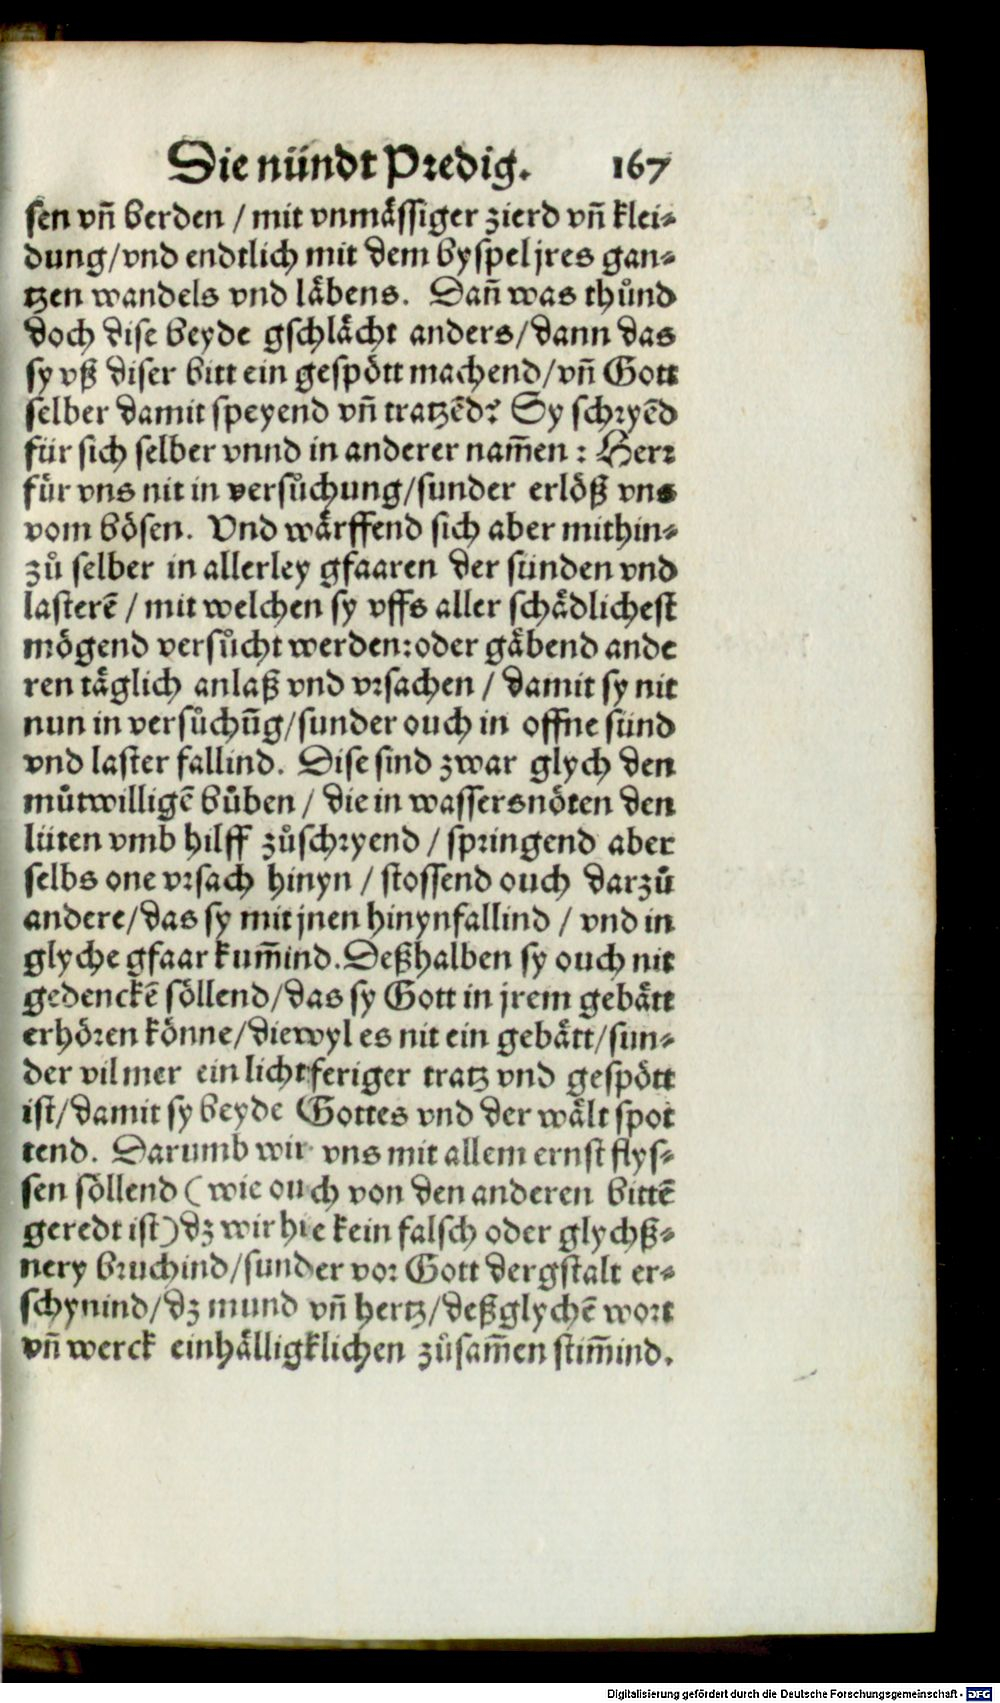 Die nündt Predig. 167
sen vñ berden / mit vnmässiger zierd vñ klei-
dung/vnd endtlich mit dem byspel jres gan-
tzen wandels vnd läbens. Dañ was thůnd
doch dise beyde gschlächt anders/dann das
sy vß diser bitt ein gespött machend/vñ Gott
selber damit speyend vñ tratzēd? Sy schryēd
für sich selber vnnd in anderer nam̃en : Herr
für vns nit in versůchung/sunder erlöß vns
vom bösen. Vnd wärffend sich aber mithin-
zů selber in allerley gfaaren der sünden vnd
lasterē / mit welchen sy vffs aller schädlichest
mögend versůcht werden:oder gäbend ande
ren täglich anlaß vnd vrsachen / damit sy nit
nun in versůchũg/sunder ouch in offne sünd
vnd laster fallind. Dise sind zwar glych den
můtwilligē bůben / die in wassersnöten den
lüten vmb hilff zůschryend / springend aber
selbs one vrsach hinyn / stossend ouch darzů
andere/das sy mit jnen hinynfallind / vnd in
glyche gfaar kum̃ind. Deßhalben sy ouch nit
gedenckē söllend/das sy Gott in jrem gebätt
erhören könne/diewyl es nit ein gebätt/sun-
der vil mer ein lichtferiger tratz vnd gespött
ist/damit sy beyde Gottes vnd der wält spot
tend. Darumb wir vns mit allem ernst flys-
sen söllend (wie ouch von den anderen bittē
geredt ist) dz wir hie kein falsch oder glychß-
nery bruchind/sunder vor Gott dergstalt er-
schynind/dz mund vñ hertz/deßglychē wort
vñ werck einhälligklichen zůsam̃en stim̃ind.
Digitalisierung gefördert durch die Deutsche Forschungsgemeinschaft - DFG